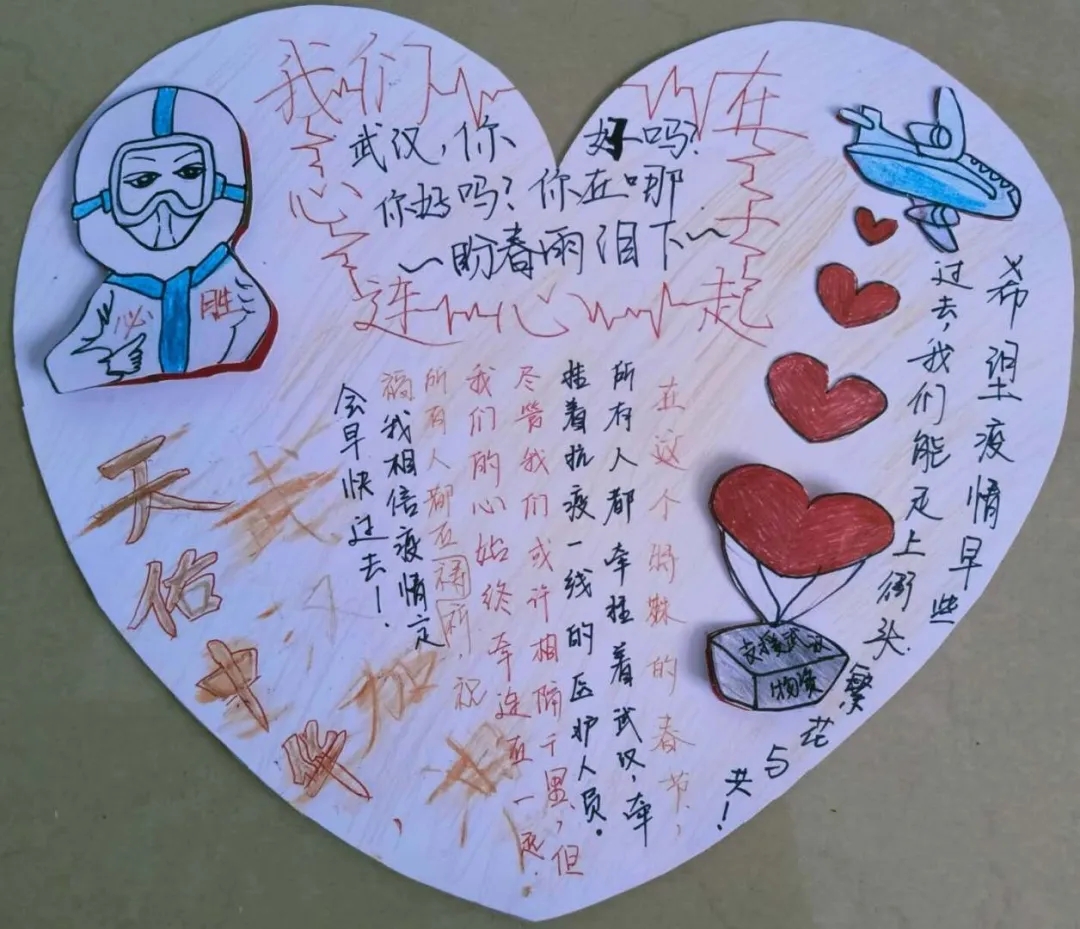 我们
在
心
连心
起
武汉,你好吗?
你好吗?你在哪
~盼春雨泪下~
必胜
在这个特殊的春节,
所有人都牵挂着武汉,牵
挂着抗疫一线的医护人员。
尽管我们或许相隔千里,但
我们的心始终牵连在一起.
所有人都在祷祈,祝
福,我相信疫情定
会早快过去!
希望疫情早些
过去,我们能走上街头
繁花与共!
支援武汉
物资
天佑中华,
武
加